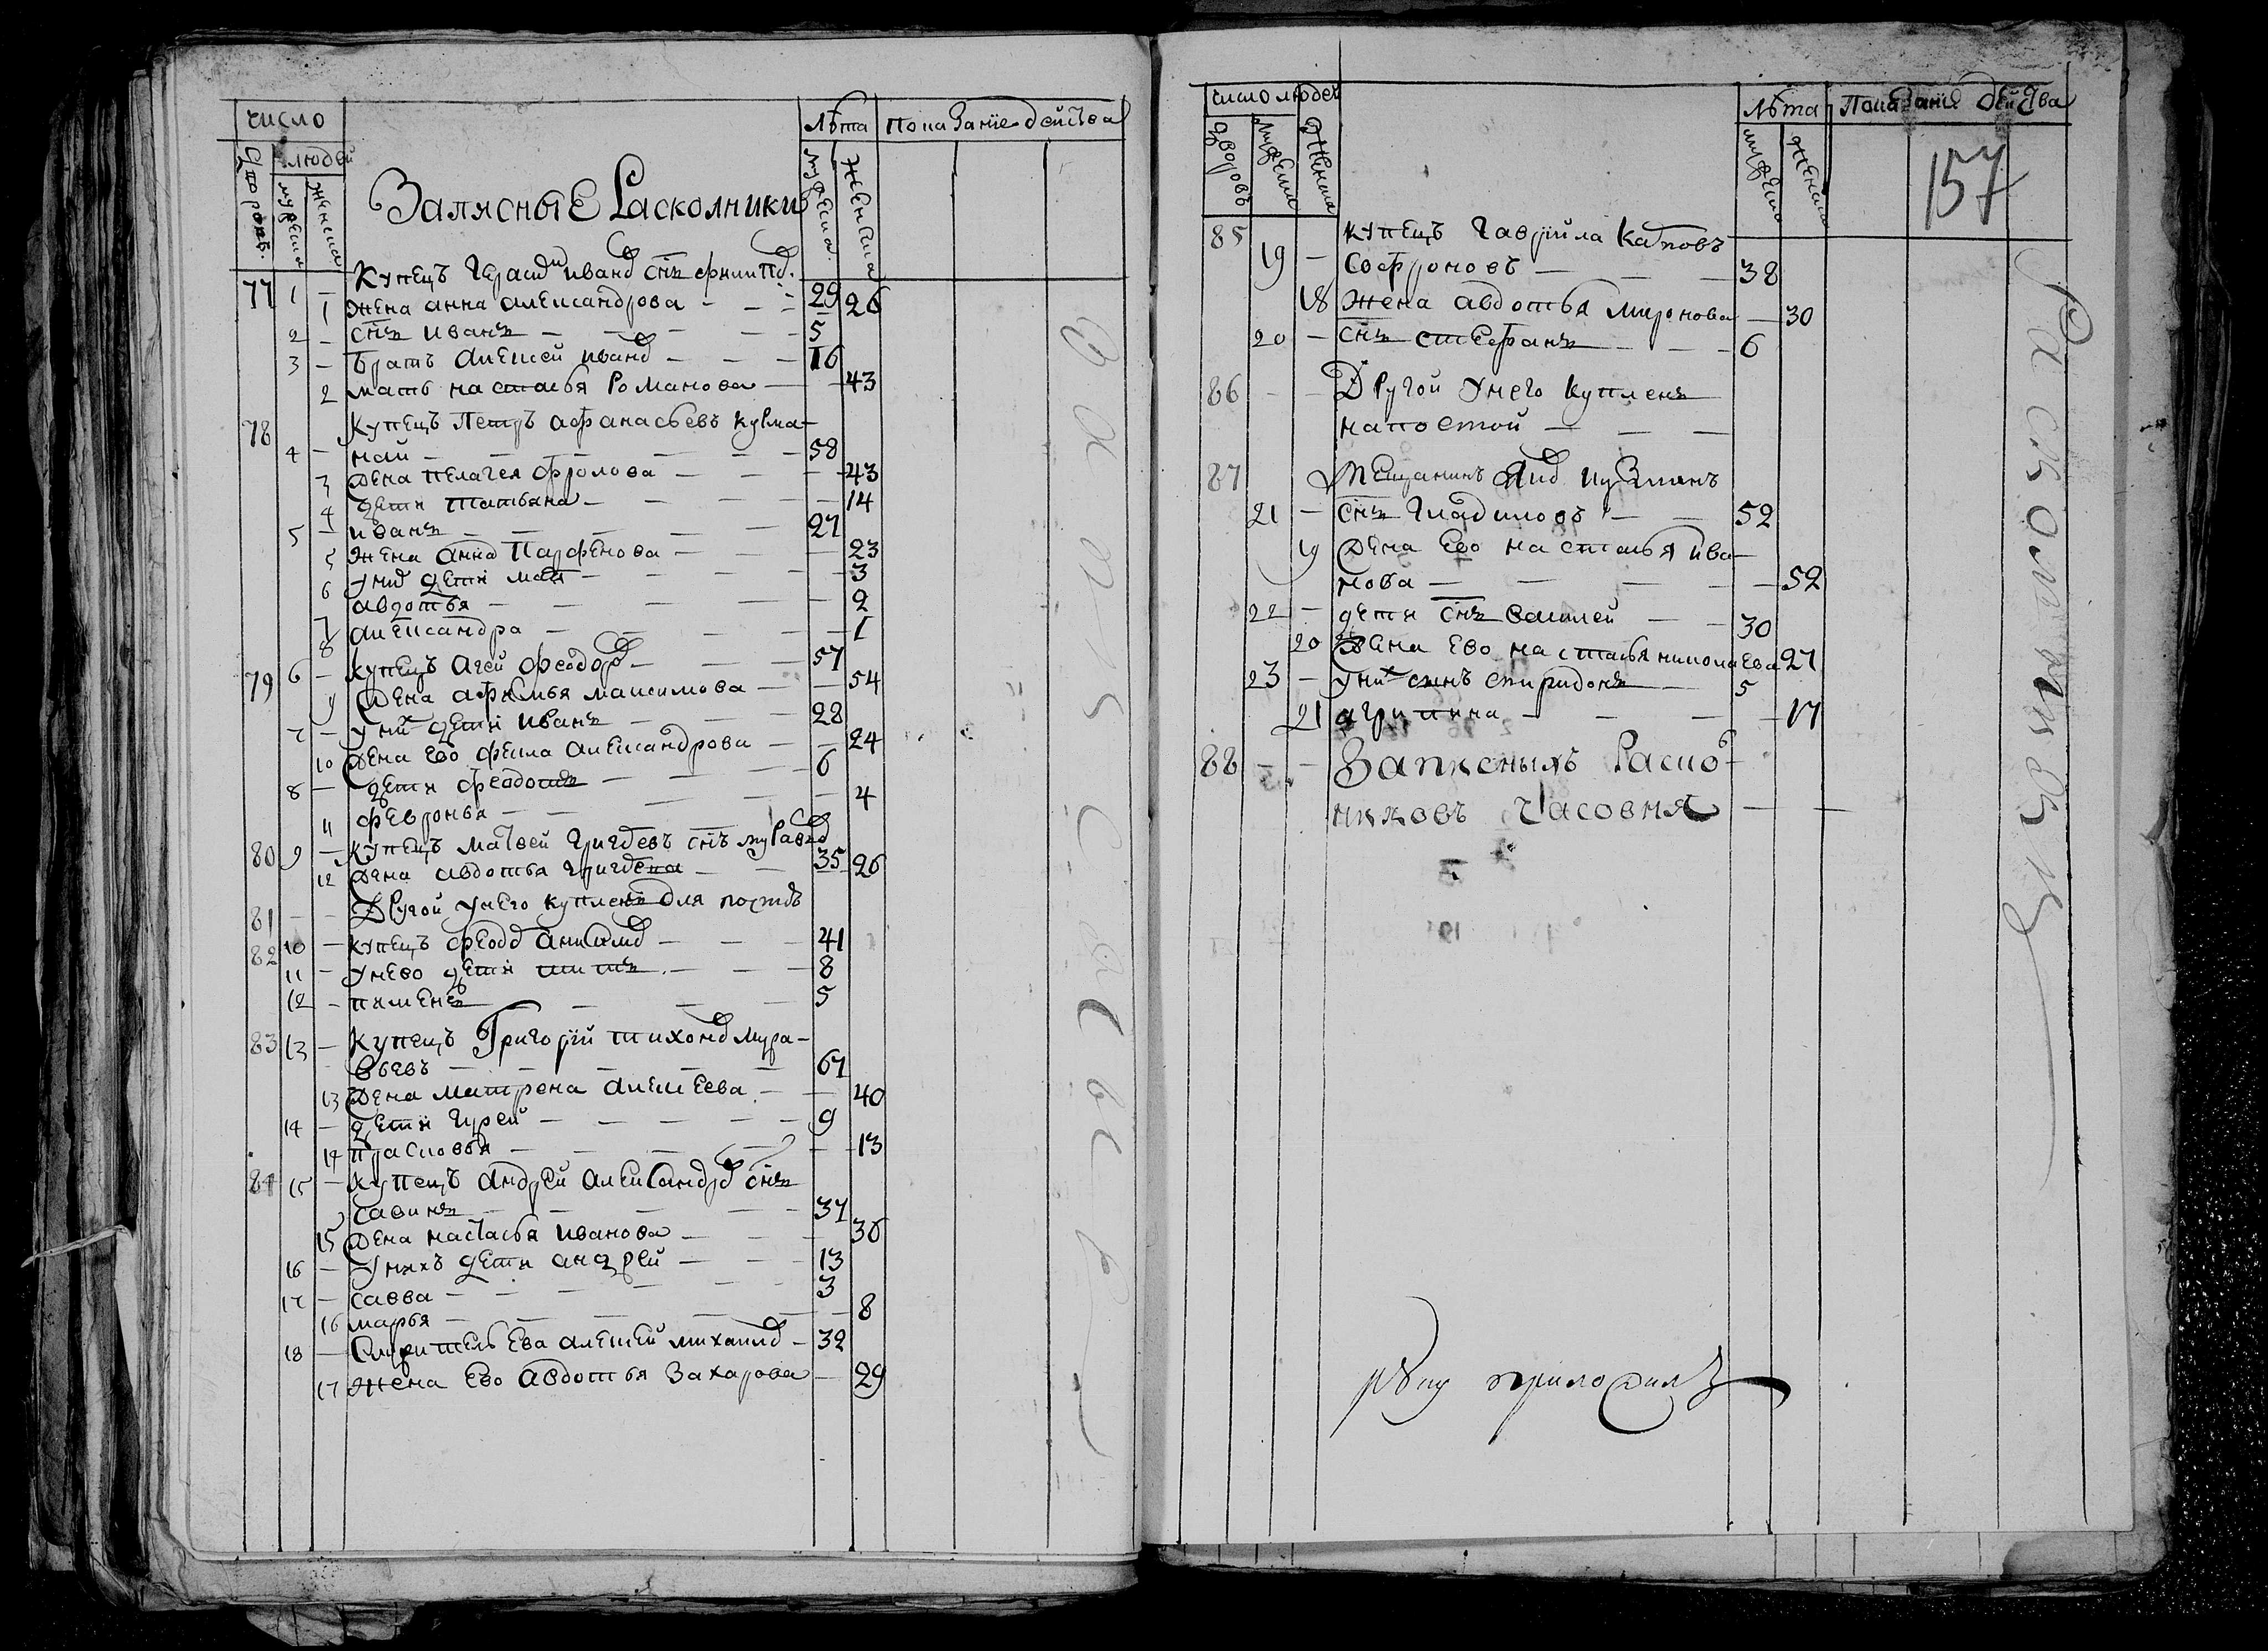 число
людей
дворовъ
мужеска
женска
лѣта
мужеска
женска
показание действа
Записные Расколники
77 1 — Купецъ Герасим Иванов снъ 29
1 жена анна александрова — 26
2 — снъ иванъ — 5
3 — братъ алексей иванов — 16
2 мать настасья Романова — 43
78 Купецъ Петръ афанасьевъ курма-
4 — най — 58
3 жена пелагея фролова — 43
4 дети татьяна — 14
5 — иванъ — 27
5 жена анна Парфенова — 23
6 у них дети — 3
7 авдотья — 2
8 александра — 1
79 6 — купецъ агей феодор — 57
9 жена афимья максимова — 54
7 — у них дети иванъ — 28
10 жена ево фекла александрова — 24
8 — дети феодотъ — 6
11 февронья — 4
80 9 — купецъ матвей снъ 35
12 жена авдотья — 26
81 — — Другой у него купленъ для
82 10 — купецъ феод — 41
11 — у нево дети титъ — 8
12 — пименъ — 5
83 13 — Купецъ Григорий тихонов мура-
вьевъ — 67
13 жена матрена алексеева — 40
14 — дети гурей — 9
14 прасковья — 13
84 15 — купецъ андрей александров снъ
савинъ — 37
15 жена настасья иванова — 36
16 — у нихъ дети андрей — 13
17 — савва — 3
16 марья — 8
18 — ева алексей михаилов — 32
17 жена ево авдотья Захарова — 29
число людей
дворовъ
мужеска
женска
лѣта
мужеска
женска
показание действа
157
85 купецъ гаврила
19 — софроновъ — 38
18 жена авдотья миронова — 30
20 — снъ стефанъ — 6
86 — — Другой у него купленъ
на постой —
87 Мещанинъ
21 — снъ гладиловъ — 52
19 жена ево настасья ива-
нова — 52
22 — дети снъ василей — 30
20 жена ево настасья николаева 27
23 — у них сынъ спиридонъ — 5
21 агрипина — 17
88 — — Записныхъ Раско
никовъ часовня —
руку приложилъ